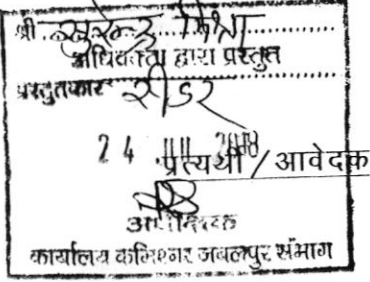 श्री सुरेन्द्र मिश्रा
अधिवक्ता द्वारा प्रस्तुत
प्रस्तुतकार रीडर
24 JUL
प्रत्यर्थी / आवेदक
अधीक्षक
कार्यालय कमिश्नर जबलपुर संभाग